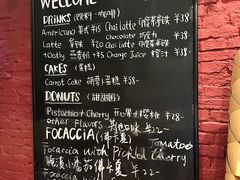 WELCOME
DRINKS (饮料·咖啡)
Americano 美式 ¥15 Chai latte 印度茶拿铁 ¥38
Chocolate 巧克力
Latte 拿铁 ¥20 Chai latte 印度茶拿铁 ¥38
+Oatly 燕麦奶 +¥5 Orange Juice 橙汁 ¥
CAKES (蛋糕)
Carrot Cake 胡萝卜蛋糕 ¥58-
DONUTS (甜甜圈)
Pistachio + Cherry 开心果+樱桃 ¥28-
other Flavors 其他口味 ¥22-
FOCACCIA (佛卡夏) Tomatoes
Focaccia with Pickled Cherry
腌渍小番茄佛卡夏 ¥22-